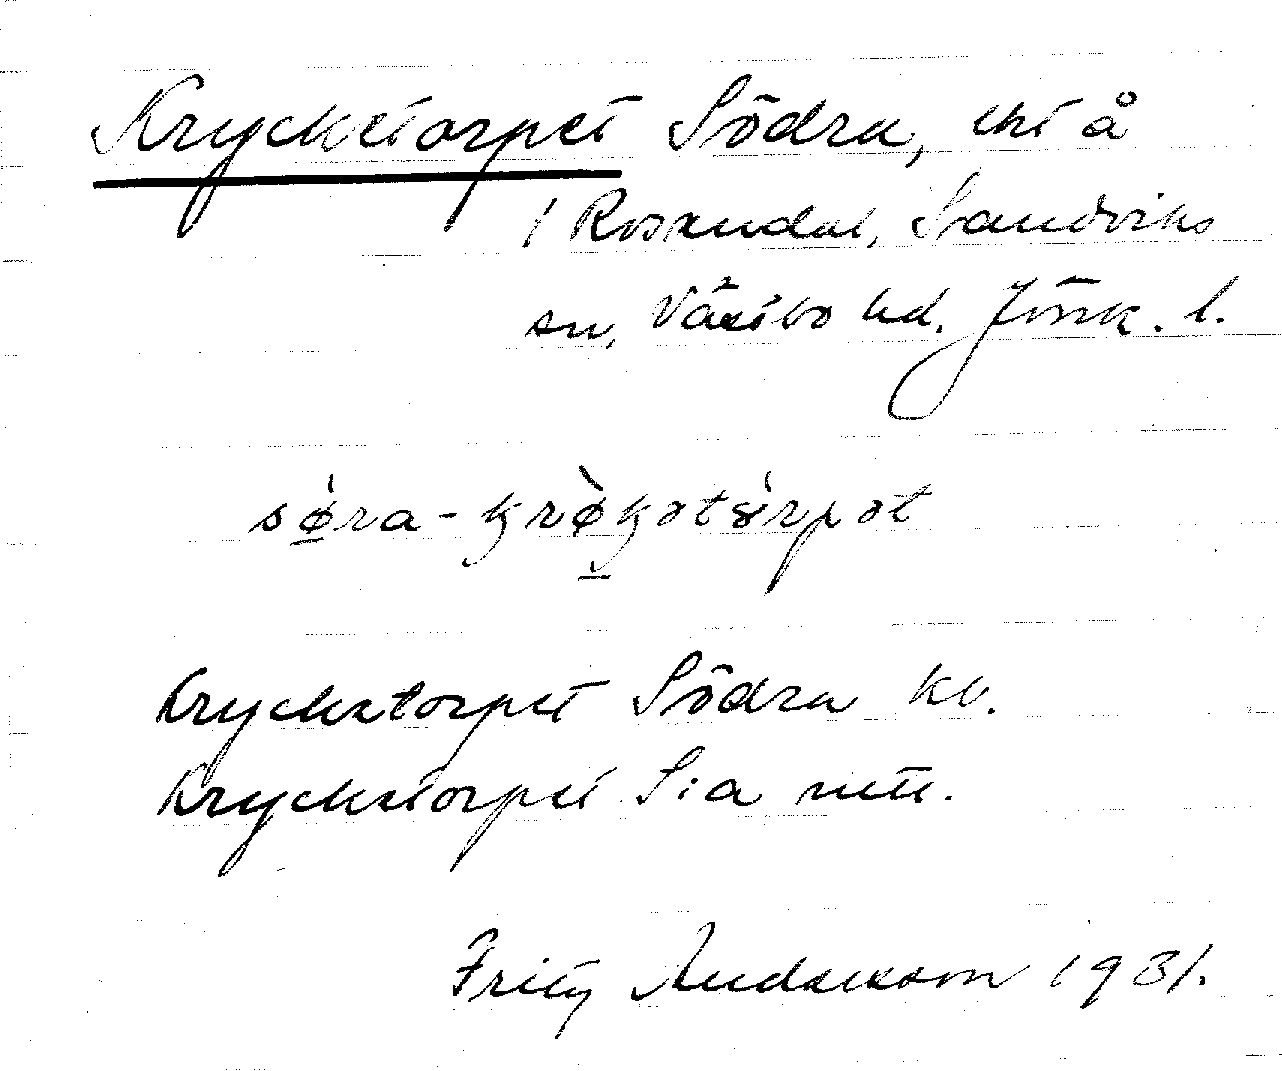 Krycketorpet Södra, tht å
1 Rosendal, Sandviks
sn, Västbo hd. Jönk. l.
sǿ̱ra-krø̱̀kətɤ́rpət
Krycketorpet Södra kb.
Krycketorpet S:a mtl.
Fritz Andersson 1931.